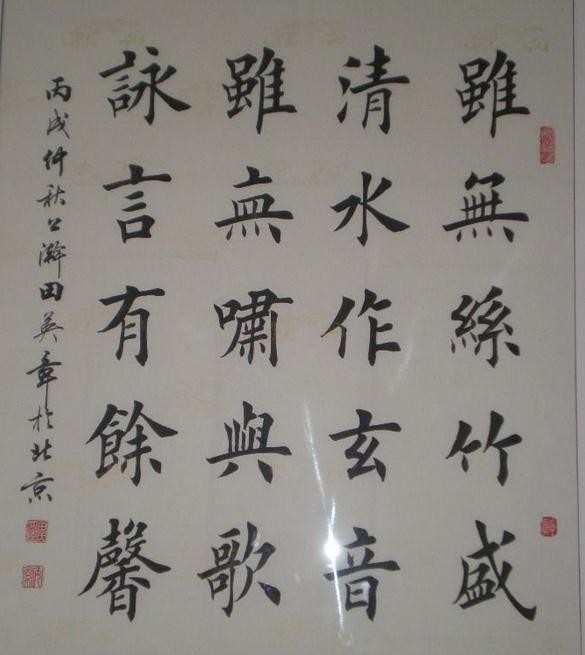 雖無絲竹盛
清水作玄音
雖無嘯與歌
詠言有餘馨
丙戌仲秋上澣田英章於北京